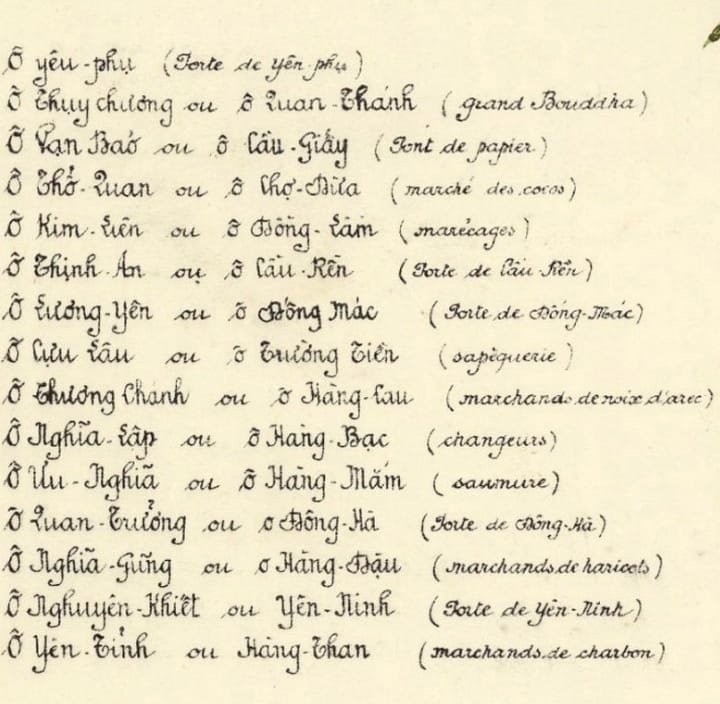 Ô yên-phụ (Porte de yên-phụ)
Ô Thụy chương ou ô Quan-Thánh (grand Bouddha)
Ô Vạn Baó ou ô Cầu-Giấy (Pont de papier)
Ô Thổ-Quan ou ô Chợ-Dừa (marché des cocos)
Ô Kim-Liên ou ô Đồng-Lầm (marécages)
Ô Thịnh-An ou ô Cầu-Rền (Porte de Cầu-Rền)
Ô Lương-Yên ou ô Đống Mác (Porte de Đống-Mác)
Ô Cựu Lâu ou ô Trường Tiền (sapèquerie)
Ô Thương Chánh ou ô Hàng-Cau (marchands de noix d'arec)
Ô Nghĩa-Lập ou ô Hàng-Bạc (changeurs)
Ô Ưu-Nghĩa ou ô Hàng-Mắm (saumure)
Ô Quan-Trưởng ou o Đông-Hà (Porte de Đông-Hà)
Ô Nghĩa-Gũng ou o Hàng-Đậu (marchands de haricots)
Ô Nghuyên-Khiết ou Yên-Ninh (Porte de Yên-Ninh)
Ô Yên-Tỉnh ou Hàng-Than (marchands de charbon)